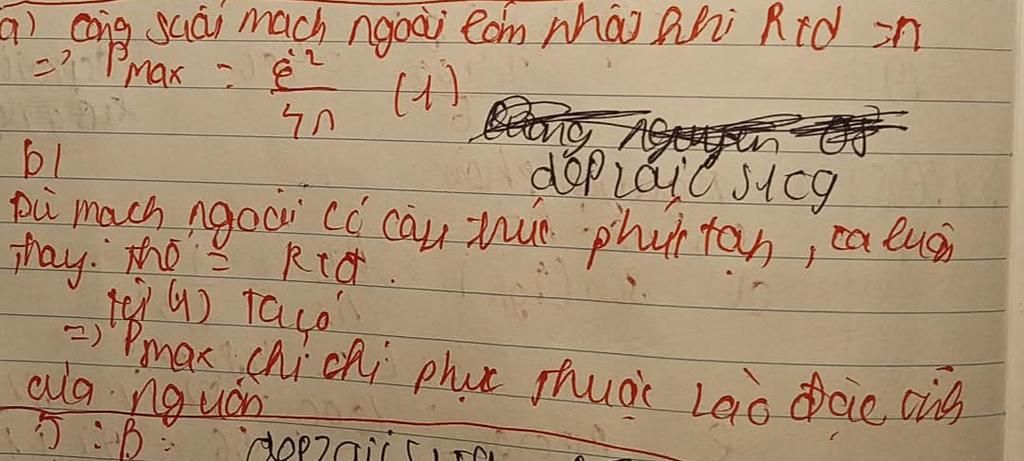 a) công suất mạch ngoài lớn nhất khi Rtđ = r
=> Pmax = ε²/4r (1)
b/
depzaiCS1cg
Dù mạch ngoài có cấu trúc phức tạp, ta luôn
thay. thế = Rtđ.
từ (1) ta có
=> Pmax chỉ chỉ phục thuộc vào đặc
của nguồn
5 : B :